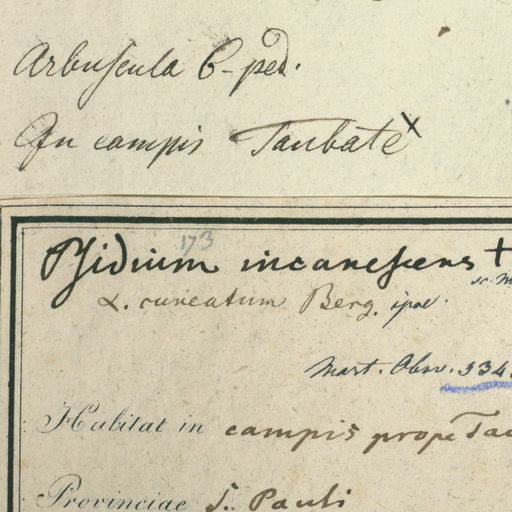 Arbuscula 6-ped.
In campis Taubate x
173
Psidium incanescens +
α. cuneatum Berg. ipse.
Mart. Obsv. 334.
Habitat in campis prope Tau
Provinciae S. Pauli